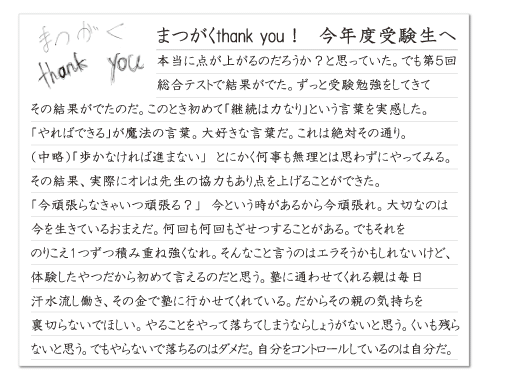 まつがく
thank you
まつがくthank you！　今年度受験生へ
本当に点が上がるのだろうか？と思っていた。でも第5回
総合テストで結果がでた。ずっと受験勉強をしてきて
その結果がでたのだ。このとき初めて「継続は力なり」という言葉を実感した。
「やればできる」が魔法の言葉。大好きな言葉だ。これは絶対その通り。
（中略）「歩かなければ進まない」　とにかく何事も無理とは思わずにやってみる。
その結果、実際にオレは先生の協力もあり点を上げることができた。
「今頑張らなきゃいつ頑張る？」　今という時があるから今頑張れ。大切なのは
今を生きているおまえだ。何回も何回もざせつすることがある。でもそれを
のりこえ1つずつ積み重ね強くなれ。そんなこと言うのはエラそうかもしれないけど、
体験したやつだから初めて言えるのだと思う。塾に通わせてくれる親は毎日
汗水流し働き、その金で塾に行かせてくれている。だからその親の気持ちを
裏切らないでほしい。やることをやって落ちてしまうならしょうがないと思う。くいも残ら
ないと思う。でもやらないで落ちるのはダメだ。自分をコントロールしているのは自分だ。